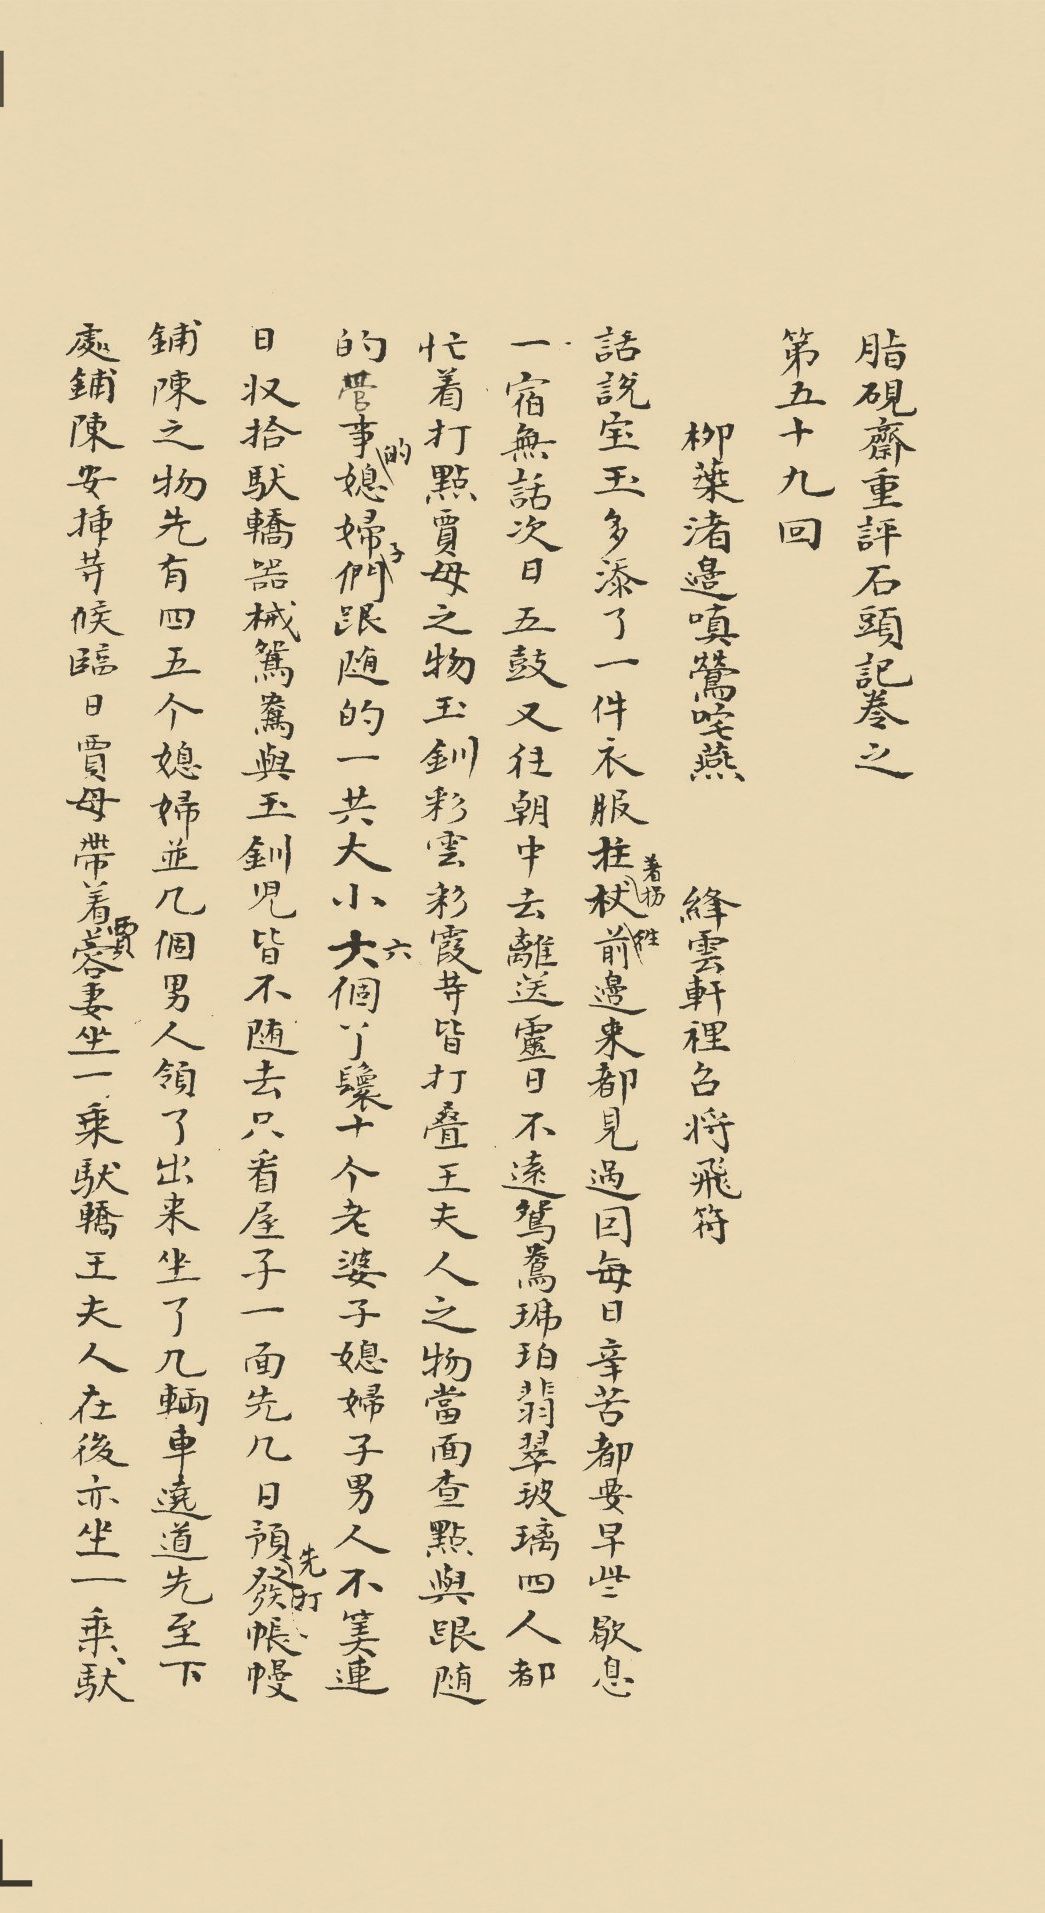 脂硯齋重評石頭記卷之
第五十九回
柳葉渚邉嗔鶯咤燕 絳雲軒裡召將飛符
話説宝玉多添了一件衣服拄着拐杖往前邉来都見過囙每日辛苦都要早些歇息
一宿無話次日五鼓又往朝中去離送靈日不遠鴛鴦琥珀翡翠玻璃四人都
忙着打點賈母之物玉釧彩雲彩霞䓁皆打叠王夫人之物當面查點與跟随
的管事的媳婦子們跟随的一共大小六個丫鬟十个老婆子媳婦子男人不筭連
日収拾馱轎器械鴛鴦與玉釧児皆不随去只看屋子一面先几日預先打發帳幔
鋪陳之物先有四五个媳婦並几個男人領了出来坐了几輛車遶道先至下
處鋪陳安揷䓁候臨日賈母帶着賈蓉妻坐一乘馱轎王夫人在後亦坐一乘馱